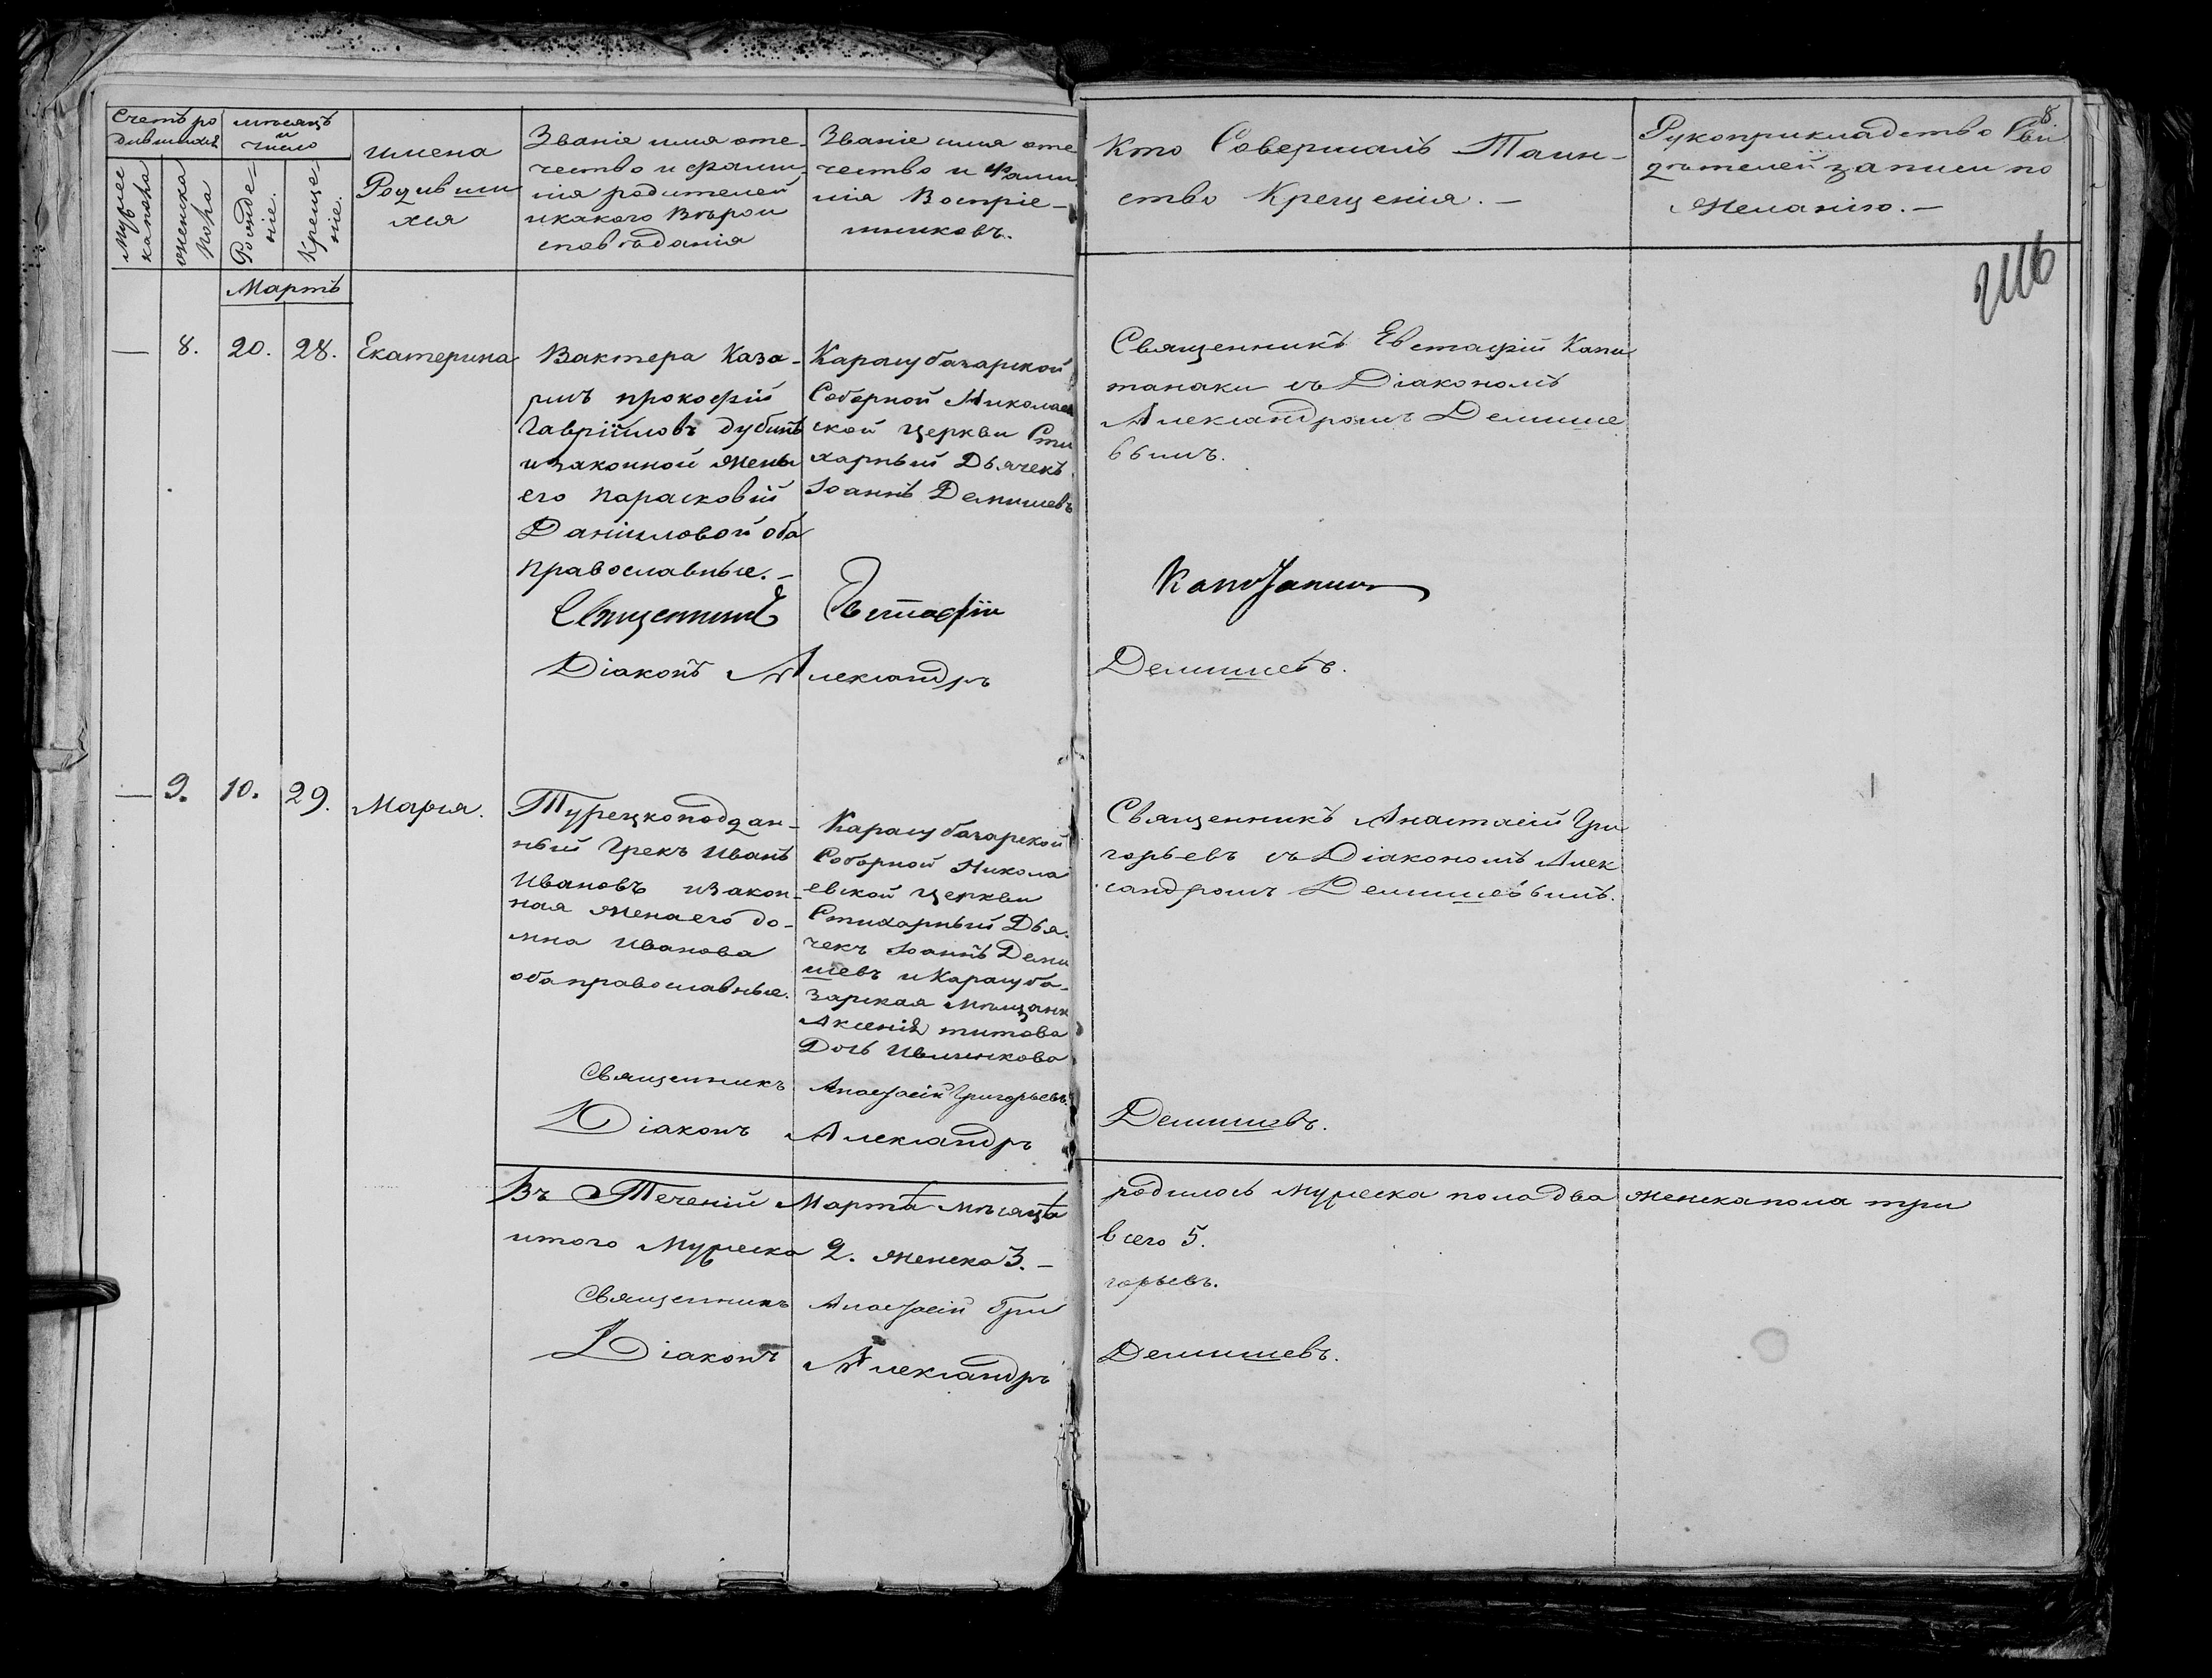 Счетъ ро
дившихся
Мужес
капола
женска
пола
мѣсяцъ
и
число
Рожде-
ніе.
Крещe-
ніе.
имена
Родивши
хся
Званіе имя оте-
чество и фами-
лія родителей
икакого Вѣрои
сповѣданія
Званіе имя оте
чество и Фами-
лія Воспріе-
мниковъ.
Кто Совершалъ Таин-
ство Крещенія. —
Рукоприкладство Сви
дѣтелей записи по
Желанію. —
8.
Мартъ
— 8. 20. 28. Екатерина
Вахтера Каза-
рмъ прокофій
Гавріиловъ дубинъ
изаконной жены
его Парасковій
Даніиловой оба
православные. —
Карасубазарской
Соборной Николаев
ской церкви Сти
харный Дьячекъ
Іоаннъ Демишевъ
Священникъ Евстафій Капи
танаки съ Діакономъ
Александромъ Демише
вымъ.
Священникъ Евстафій
Діаконъ Александръ
Демишевъ.
— 9. 10. 29. Мария.
Турецкоподдан-
ный Грекъ Иванъ
Ивановъ изакон-
ная жена его до-
мна Иванова
оба православные.
Карасубазарской
Соборной Никола
евской церкви
Стихарный Дья-
чекъ Іоаннъ Деми
шевъ и Карасуба-
зарская Мѣщанк
Аксенія титова
Дочь
Священникъ Анастасій Гри
горьевъ съ Діакономъ Алек
сандромъ Демишевымъ.
Священникъ Анастасій Григорьевъ.
Діаконъ Александръ
Демишевъ.
Въ Теченій Марта мѣсяца родилось мужеска пола два женскапола три
итого Мужеска 2. женска 3. — всего 5.
Священникъ Анастасій Гри
горьевъ.
Діаконъ Александръ
Демишевъ.